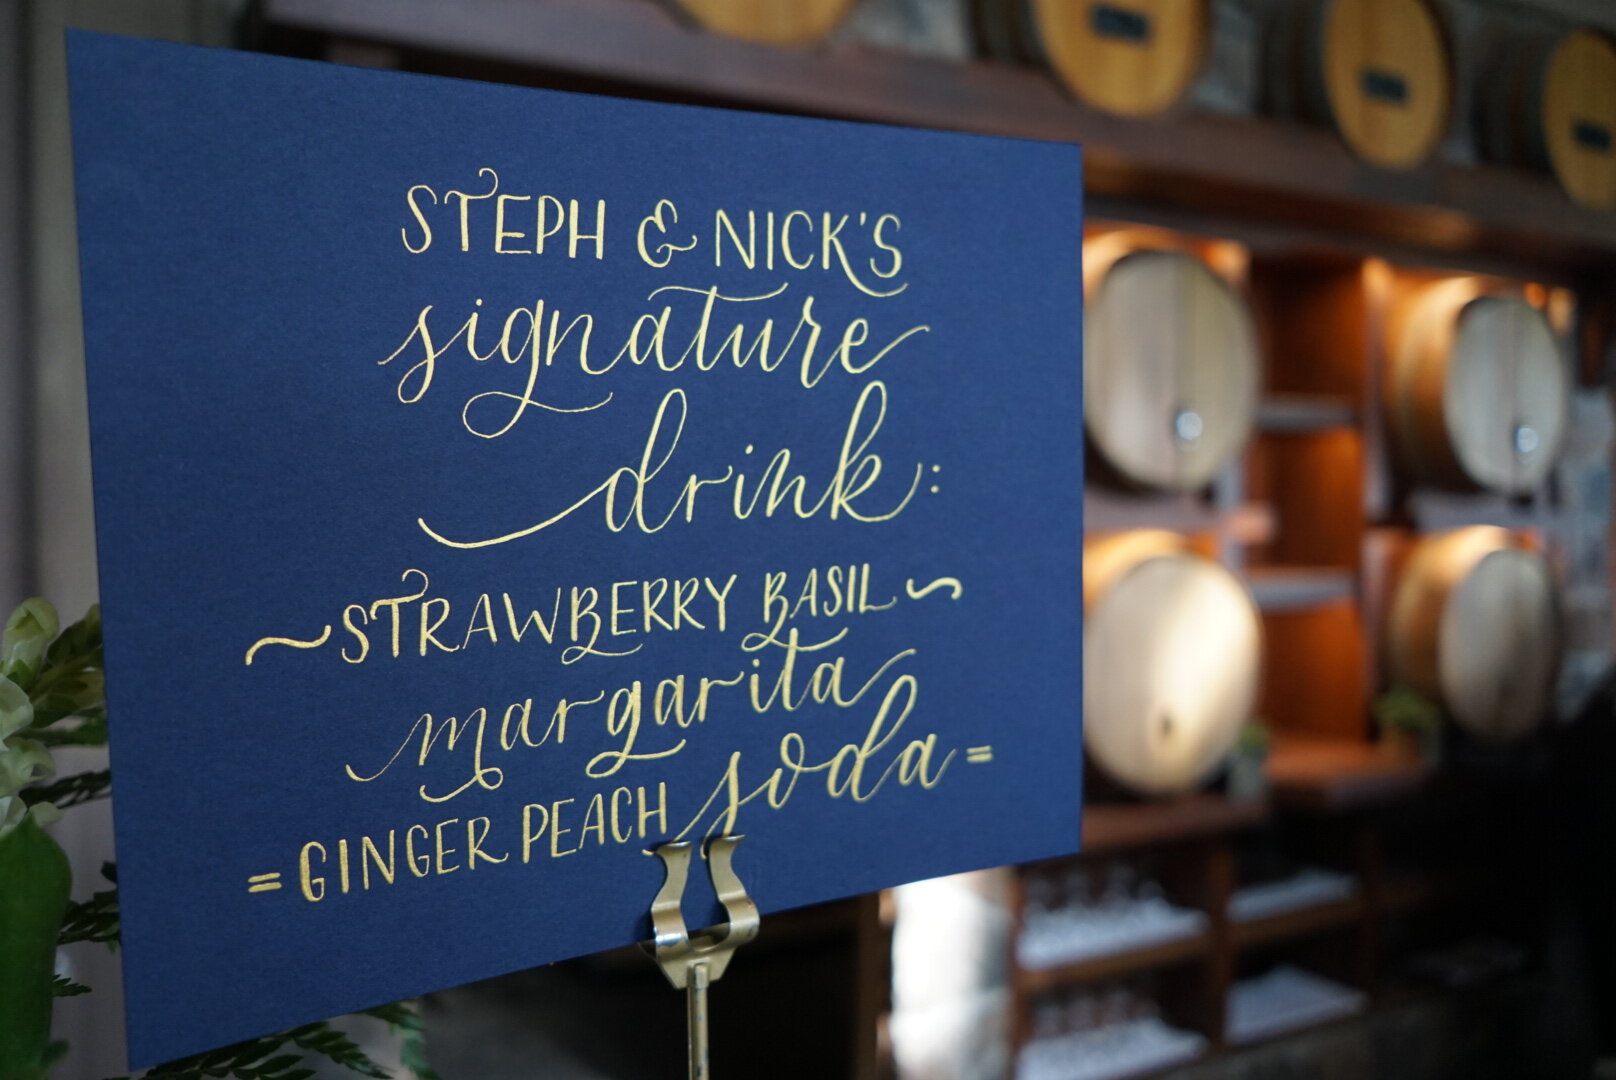 STEPH & NICK'S
signature
drink:
~STRAWBERRY BASIL~
margarita
=GINGER PEACH soda=